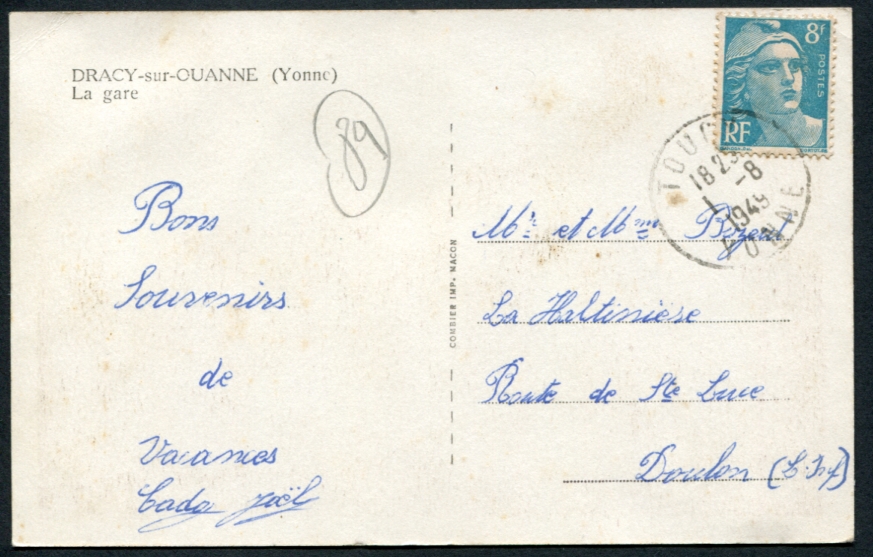 DRACY-sur-OUANNE (Yonne)
La gare
89
8f
POSTES
RF
TOUC
18 23
1 -8
1949
YONNE
Bons
Souvenirs
de
Vacances
Joël
COMBIER IMP. MACON
Mr et Mme
La Haltinière
Route de Ste Luce
Doulon (L. Inf)